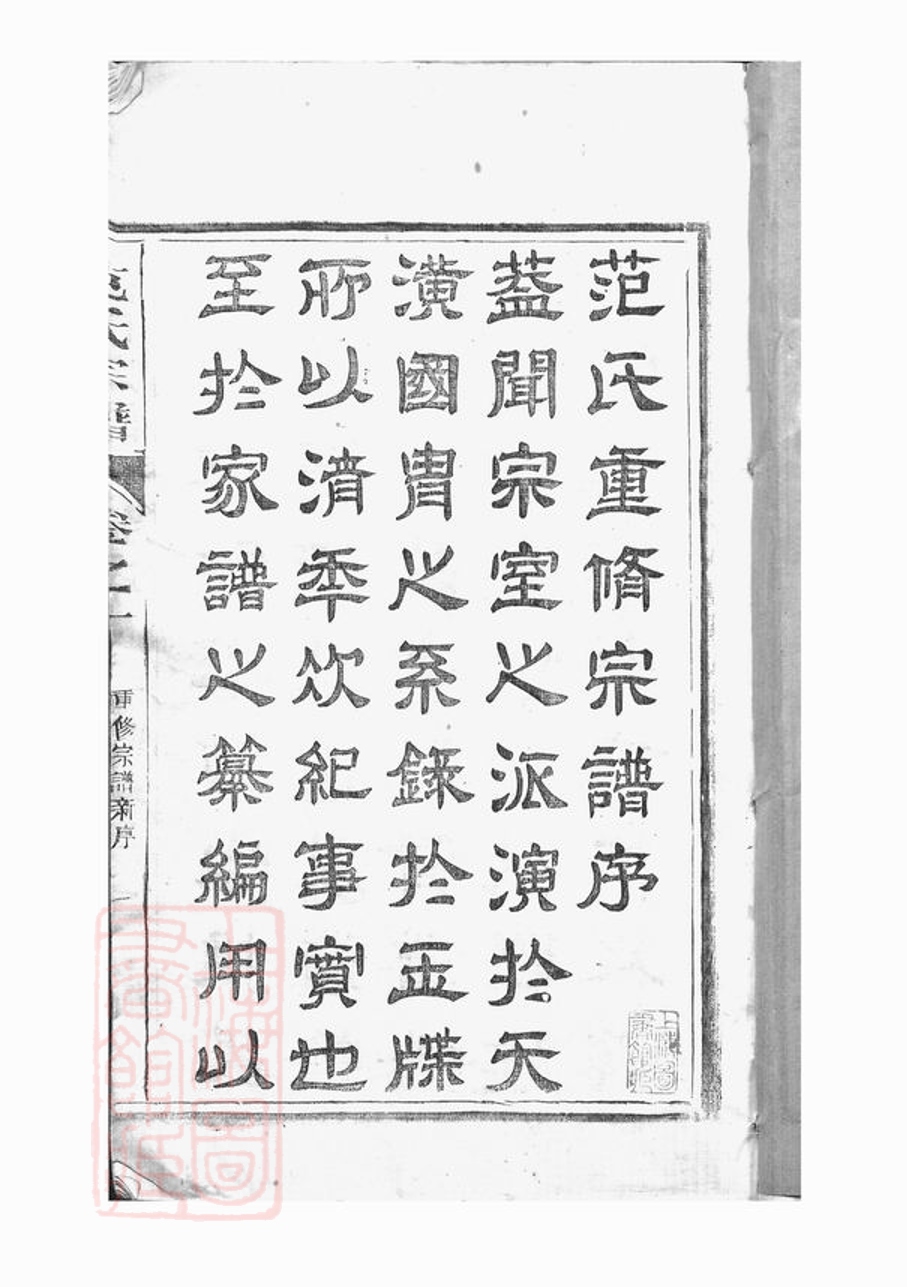 范氏重脩宗譜序
葢聞宗室之派演於天
潢國胄之系錄於玉牒
所以清年次紀事實也
至於家譜之纂編用以
范氏宗譜
卷之一
重修宗譜新序
一
上海圖書館藏